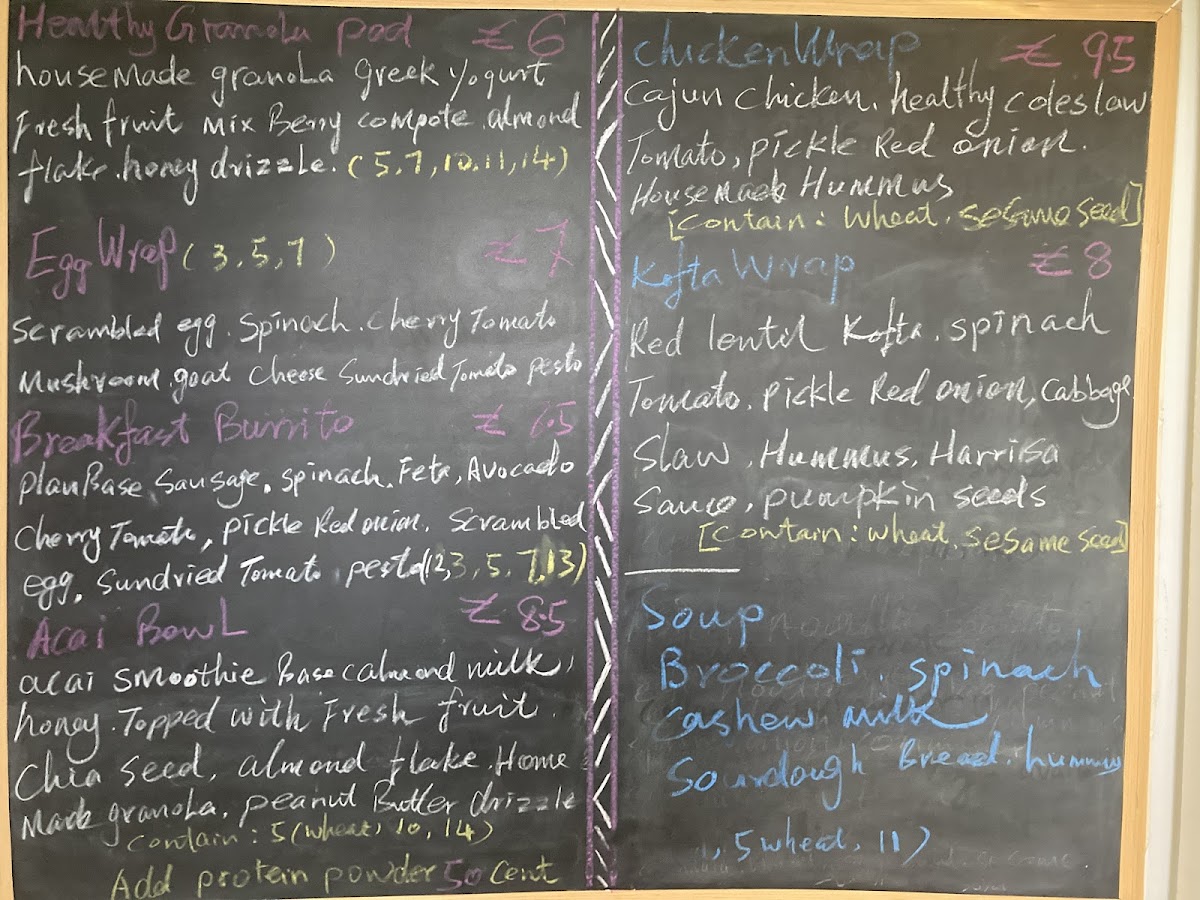 Healthy Granola pod € 6
house Made granola Greek yogurt
Fresh fruit Mix Berry compote almond
flake. honey drizzle. (5,7,10.11,14)
Egg Wrap (3,5,7) € 7
Scrambled egg. Spinach. Cherry Tomato
Mushroom. goat cheese Sundried Tomato pesto
Breakfast Burrito € 6.5
plan Base. Sausage. spinach. Feta, Avocado
Cherry Tomato, pickle Red onion. Scrambled
egg. Sundried Tomato pesto(12,3,5,7,13)
Acai Bowl € 8.5
acai smoothie Base calmond milk,
honey. Topped with Fresh fruit.
Chia Seed, almond flake. Home
Made granola, peanut Butter drizzle
Contain: 5(wheat) 10, 14)
Add protein powder 50 Cent
chicken Wrap € 9.5
Cajun Chicken. healthy coleslaw
Tomato, pickle Red onion.
House made Hummus
[Contain: wheat. Sesame seed]
Kofta Wrap € 8
Red lentil Kofta. spinach
Tomato. pickle Red onion, Cabbage
Slaw, Hummus, Harrisa
Sauce, pumpkin seeds
[Contain: wheat. Sesame seed]
Soup
Broccoli. spinach
Cashew milk
Sourdough Bread. hummus
1, 5 wheat, 11)